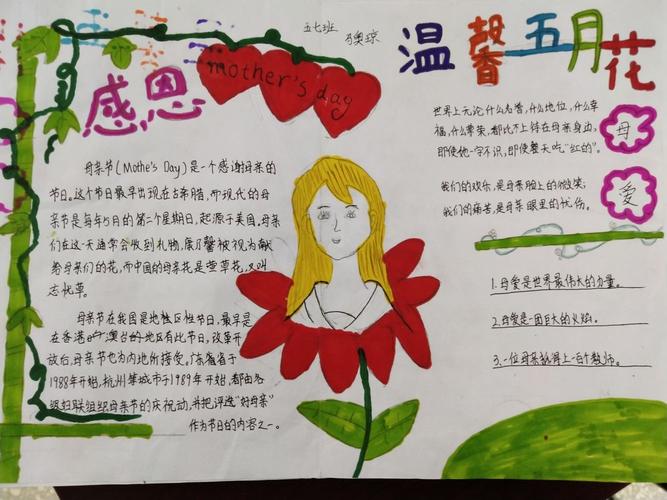 五七班
温馨五月花
感恩
mother's day
母亲节(Mothe's Day)是一个感谢母亲的
节日。这个节日最早出现在古希腊,而现代的母
亲节是每年5月的第二个星期日,起源于美国。母亲
们在这一天通常会收到礼物,康乃馨被视为献
给母亲们的花,而中国的母亲花是萱草花,又叫
忘忧草。
母亲节在我国是地区性节日,最早是
在香港澳台的地区有此节日,改革开
放台,母亲节也为内地所接受。广东省于
1988年开始,杭州等城市于1989年开始,都由各
级妇联组织母亲节的庆祝动,并把评选"好母亲"
作为节日的内容之一。
世界上无论什么名誉,什么地位,什么幸
福,什么尊荣,都比不上待在母亲身边,
即使他一字不识,即使整天吃"红的"。
我们的欢乐,是母亲脸上的微笑;
我们的痛苦,是母亲眼里的忧伤。
母
爱
1.母爱是世界最伟大的力量。
2.母爱是一团巨大的火焰。
3.一位母亲抵得上一百个教师。